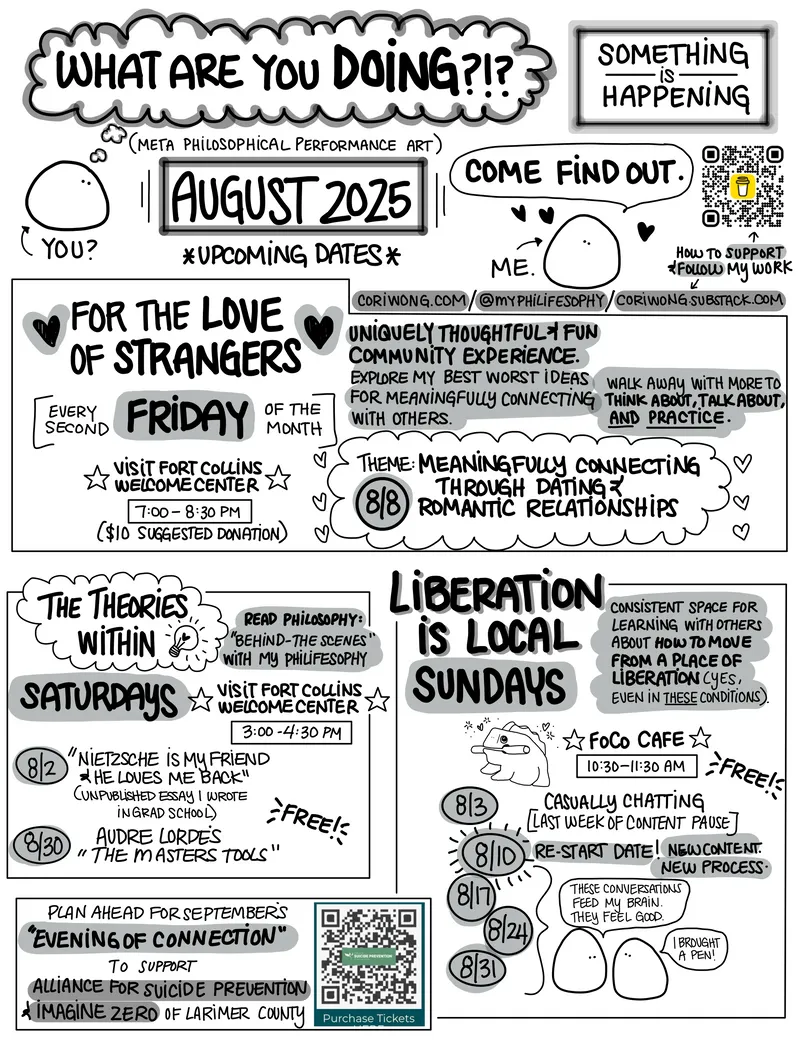 WHAT ARE YOU DOING?!?
SOMETHING
IS
HAPPENING
(META PHILOSOPHICAL PERFORMANCE ART)
AUGUST 2025
*UPCOMING DATES*
YOU?
COME FIND OUT.
ME.
HOW TO SUPPORT
& FOLLOW MY WORK
CORIWONG.COM / @MYPHILIFESOPHY / CORIWONG.SUBSTACK.COM
FOR THE LOVE
OF STRANGERS
[EVERY SECOND FRIDAY OF THE MONTH]
VISIT FORT COLLINS
WELCOME CENTER
7:00 - 8:30 PM
($10 SUGGESTED DONATION)
UNIQUELY THOUGHTFUL & FUN
COMMUNITY EXPERIENCE.
EXPLORE MY BEST WORST IDEAS
FOR MEANINGFULLY CONNECTING
WITH OTHERS.
WALK AWAY WITH MORE TO
THINK ABOUT, TALK ABOUT,
AND PRACTICE.
THEME: MEANINGFULLY CONNECTING
8/8 THROUGH DATING &
ROMANTIC RELATIONSHIPS
THE THEORIES
WITHIN
READ PHILOSOPHY:
"BEHIND-THE SCENES"
WITH MY PHILIFESOPHY
SATURDAYS
VISIT FORT COLLINS
WELCOME CENTER
3:00 - 4:30 PM
8/2 "NIETZSCHE IS MY FRIEND
& HE LOVES ME BACK"
(UNPUBLISHED ESSAY I WROTE
IN GRAD SCHOOL)
FREE!
8/30 AUDRE LORDE'S
"THE MASTERS TOOLS"
LIBERATION
IS LOCAL
SUNDAYS
CONSISTENT SPACE FOR
LEARNING WITH OTHERS
ABOUT HOW TO MOVE
FROM A PLACE OF
LIBERATION (YES,
EVEN IN THESE CONDITIONS).
FOCO CAFE
10:30-11:30 AM
FREE!
8/3 CASUALLY CHATTING
[LAST WEEK OF CONTENT PAUSE]
8/10 RE-START DATE! NEW CONTENT.
NEW PROCESS.
8/17
8/24
8/31
THESE CONVERSATIONS
FEED MY BRAIN.
THEY FEEL GOOD.
I BROUGHT
A PEN!
PLAN AHEAD FOR SEPTEMBER'S
"EVENING OF CONNECTION"
TO SUPPORT
ALLIANCE FOR SUICIDE PREVENTION
& IMAGINE ZERO OF LARIMER COUNTY
SUICIDE PREVENTION
Purchase Tickets
HERE